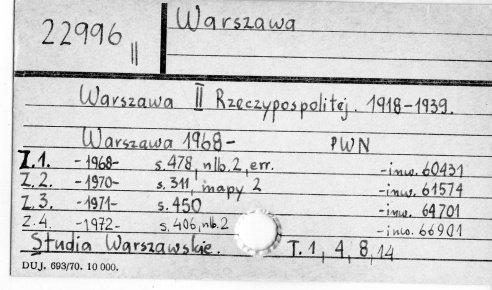 22996 II
Warszawa
Warszawa II Rzeczypospolitej. 1918-1939.
Warszawa 1968- PWN
Z.1. -1968- s.478, nlb.2, err. -inw. 60431
Z.2. -1970- s.311, mapy 2 -inw. 61574
Z.3. -1971- s.450 -inw. 64701
Z.4. -1972- s.406, nlb.2 -inw. 66901
Studia Warszawskie. T.1, 4, 8, 14
DUJ. 693/70. 10 000.